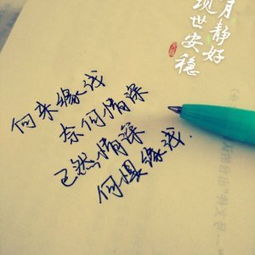 月静好
现世安稳
向来缘浅
奈何情深
已然情深
何惧缘浅.